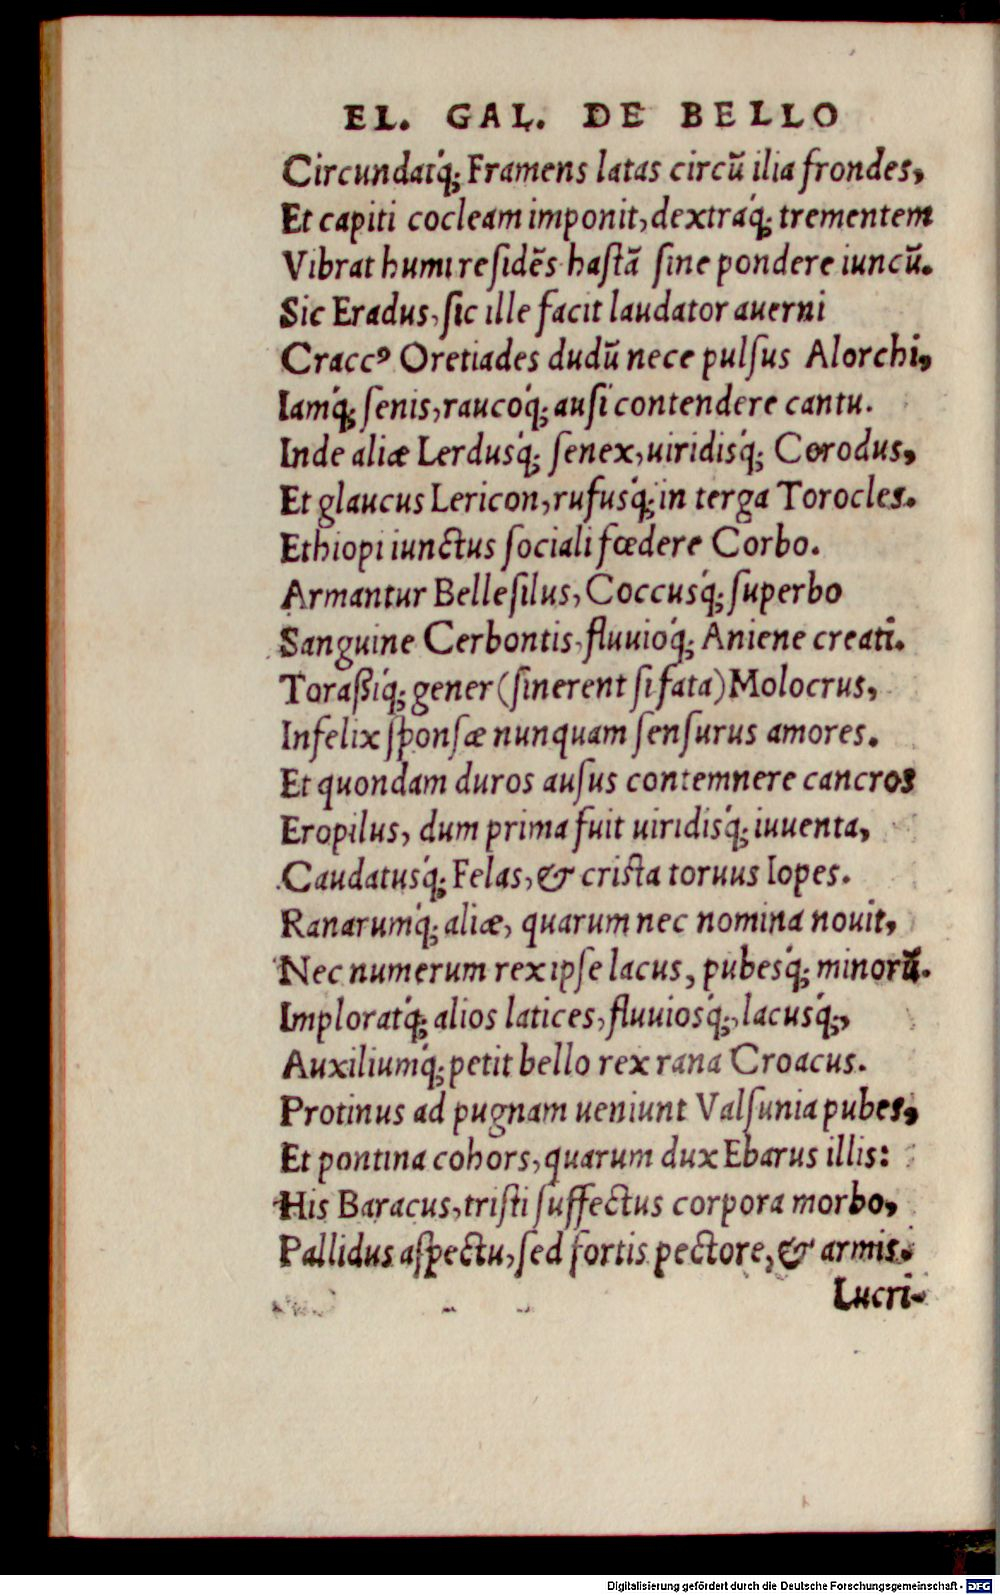 EL. GAL. DE BELLO
Circundatq́; Framens latas circũ ilia frondes,
Et capiti cocleam imponit, dextraq́; trementem
Vibrat humi reſidẽs haſtã ſine pondere iuncũ.
Sic Eradus, ſic ille facit laudator auerni
Craccꝰ Oretiades dudũ nece pulſus Alorchi,
Iamq́; ſenis, raucoq́; auſi contendere cantu.
Inde aliæ Lerdusq́; ſenex, uiridisq́; Corodus,
Et glaucus Lericon, rufusq́; in terga Torocles.
Ethiopi iunctus ſociali fœdere Corbo.
Armantur Belleſilus, Coccusq́; ſuperbo
Sanguine Cerbontis, fluuioq́; Aniene creati.
Toraßiq́; gener (ſinerent ſi fata) Molocrus,
Infelix ſponſæ nunquam ſenſurus amores.
Et quondam duros auſus contemnere cancros
Eropilus, dum prima fuit uiridisq́; iuuenta,
Caudatusq́; Felas, & criſta toruus Iopes.
Ranarumq́; aliæ, quarum nec nomina nouit,
Nec numerum rex ipſe lacus, pubesq́; minorũ.
Imploratq́; alios latices, fluuiosq́;, lacusq́;,
Auxiliumq́; petit bello rex rana Croacus.
Protinus ad pugnam ueniunt Valſunia pubes,
Et pontina cohors, quarum dux Ebarus illis:
His Baracus, triſti ſuffectus corpora morbo,
Pallidus aſpectu, ſed fortis pectore, & armis.
Lucri-
Digitalisierung gefördert durch die Deutsche Forschungsgemeinschaft - DFG